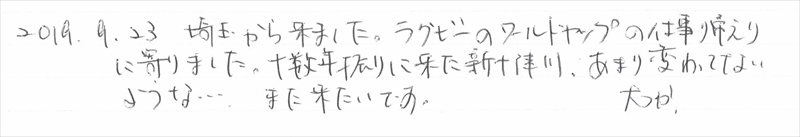 2019.9.23 埼玉から来ました。ラグビーのワールドカップの仕事帰えり
に寄りました。十数年振りに来た新十津川、あまり変わってない
ような… また来たいです。